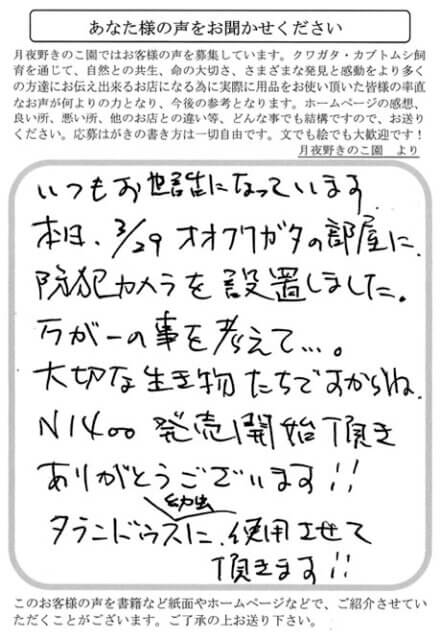 あなた様の声をお聞かせください
月夜野きのこ園ではお客様の声を募集しています。クワガタ・カブトムシ飼
育を通じて、自然との共生、命の大切さ、さまざまな発見と感動をより多く
の方達にお伝え出来るお店になる為に実際に用品をお使い頂いた皆様の率直
なお声が何よりの力となり、今後の参考となります。ホームページの感想、
良い所、悪い所、他のお店との違い等、どんな事でも結構ですので、お送り
ください。応募はがきの書き方は一切自由です。文でも絵でも大歓迎です！
月夜野きのこ園　より
いつもお世話になっています
本日、3/29 オオクワガタの部屋に、
防犯カメラを設置しました。
万が一の事を考えて…。
大切な生き物たちですからね、
N1400 発売開始頂き
ありがとうございます!!
幼虫
タランドゥスに、使用させて
頂きます!!
このお客様の声を書籍など紙面やホームページなどで、ご紹介させてい
ただくことがございます。ご了承の上お送り下さい。